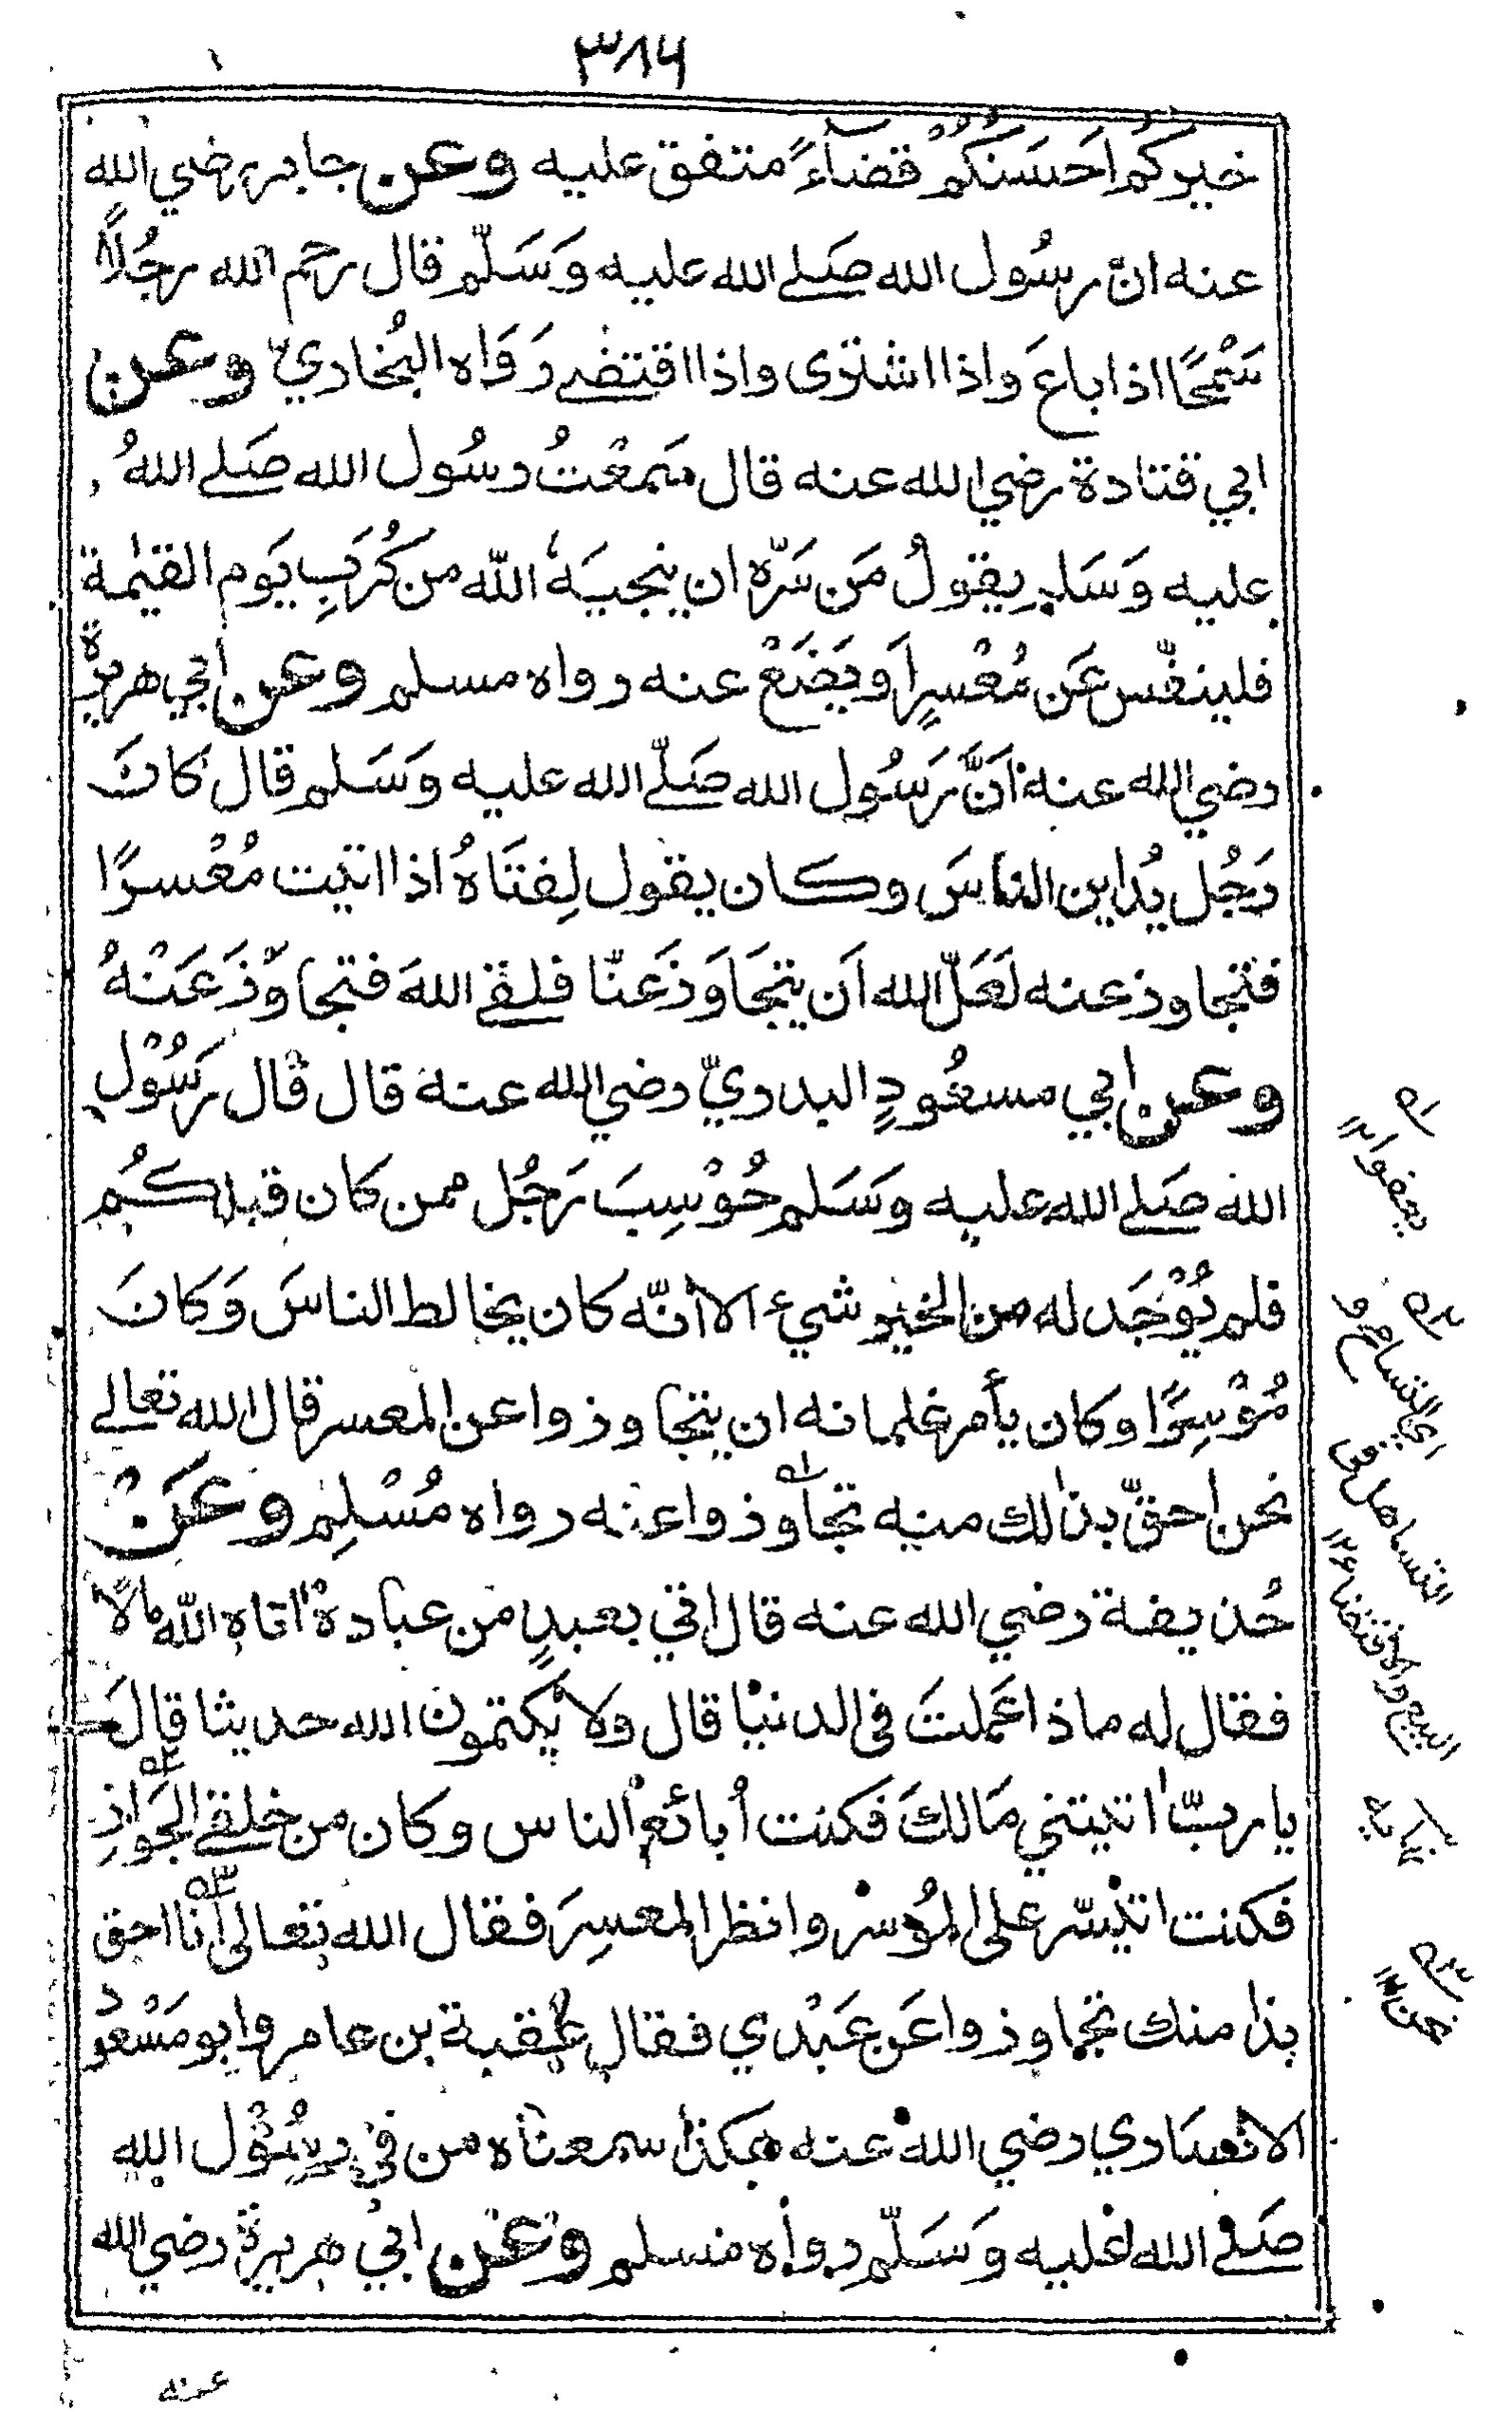 ٣٨٦
خيركم احَسَنُكُمْ قضآءً متفق عليه وعن جابر رضي الله
عنه انّ رسُول الله صَلى الله عليه وَسَلّم قال رحم الله رجُلاً
سَمْحًا اذا باعَ واذا اشترى واذا اقتضى رَوَاه البُخاريّ وعن
ابي قتادة رضي الله عنه قال سَمعْتُ رسُول الله صَلى اللهُ
عليه وَسَلم يقولُ مَن سَرّه ان ينجيَهُ الله من كُرَبِ يَوم القيٰمة
فلينفّس عَن مُعْسِرٍ اَو يَضَعْ عنه رواه مسلم وعن ابي هريرة
رضي الله عنه اَنَّ رَسُول الله صَلّى الله عليه وَسَلم قال كانَ
رَجُل يُداين الناسَ وكان يقول لِفتَاهُ اذا اتيت مُعْسرًا
فتجاوز عنه لَعَلّ الله اَن يتجَاوَزَ عَنّا فلقى اللهَ فتجاوَزَ عَنْهُ
وعن ابي مسعُودٍ البدريّ رضي الله عنه قال قال رَسُوْل
الله صَلى الله عليه وسَلم حُوْسِبَ رَجُل ممن كان قبلكُم
فلم يُوْجَد له من الخير شيء الا أنّه كان يخالط الناسَ وَكانَ
مُوْسِرًا وكان يأمر غلمانه ان يتجاوزوا عن المعسر قال الله تعالى
نحن احقّ بذالك منه تجاوزوا عنه رواه مُسْلِم وعَنْ
حُذيفة رضي الله عنه قال اتي بعبدٍ من عباده اتاه الله مالاً
فقال له ماذا عَملتَ فى الدنيا قال ولا يكتمون الله حديثا قالَ
يا ربّ اتيتني مَالكَ فكنت أُبائع الناس وكان من خلقى الجَوَازِ
فكنت اتيسّر على المُوسر وانظر المعسِرَ فقال الله تعالى أنا احق
بذا منك تجاوزوا عَن عَبْدي فقال عُقبة بن عامر وابو مَسْعُود
الانصَاري رضي الله عنه هكذا سمعناه من في رسُوْل الله
صَلى الله عليه وَسَلّم رواه مسلم وعن ابي هريرة رضي الله
عنه
١ه
يعفوا ١٢
٢ه
اي التسامح و
التساهل فى
البيع والاقتضاء ١٢
٣ه
نحن ١٢